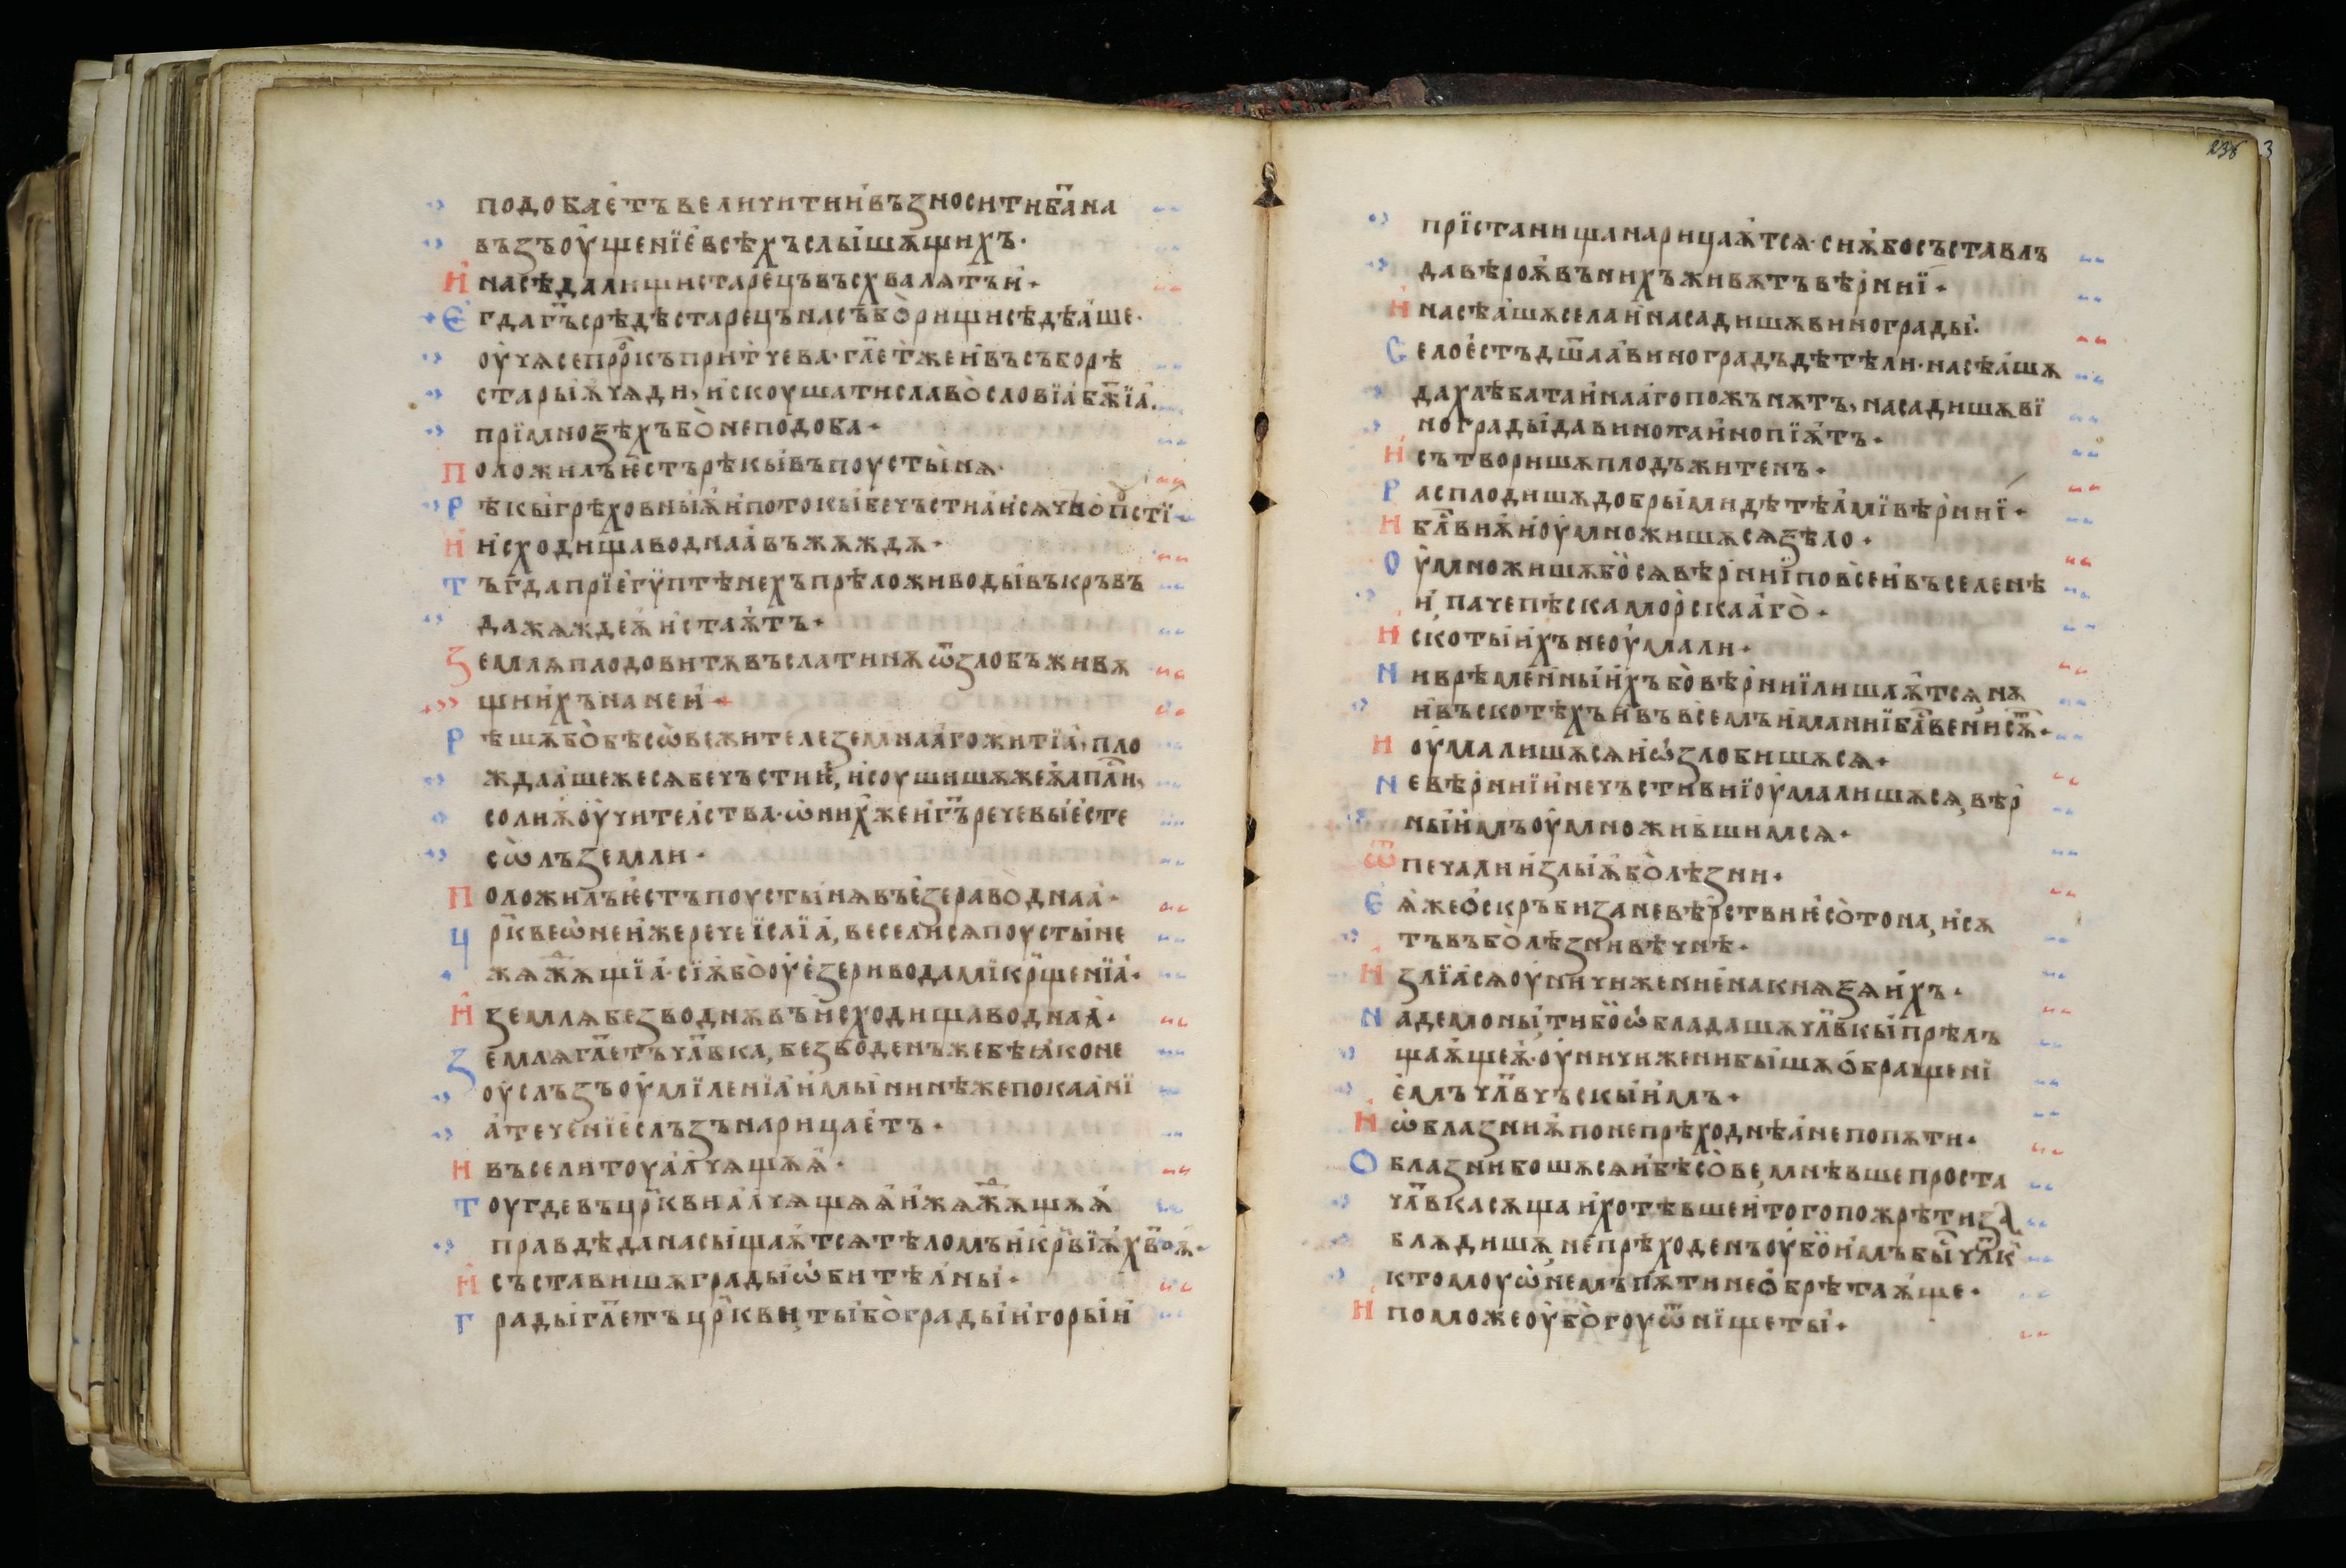 подобаетъ величити и възносити б҃а на
въ зъоушенїе всѣхъ слышѫщихъ·
И на сѣдалищи старецъ въсхвалятъ и·
Егда г҃ъ срѣдѣ старецъ на съборищи сѣдѣаше·
оучѧсе пр҃ркъ притчева· гл҃етже и въ съборѣ
старыѫ чѧди, искоушати славословїа бж҃їа·
при мноѕѣхъ бо не подоба·
Положилъ ѥстъ рѣкы въ поустынѧ·
Рѣкы грѣховныѫ и потокы бечъстиа исѧчи
И исходища воднаа въ жѧждѫ·
Тъгда при егѵптѣнехъ прѣложи воды въ кръвъ
да жѧждеѫ истаѫтъ·
Землѧ плодовитѫ въ слатинѫ ѿ злобъ живѫ
щиихъ на неи·
Рѣшѫ бо бѣсѡве жителе земнааго житїа, пло
ждаашежесѧ бечъстии, исоушишѫже ѫ ап҃ли,
солиѫ оучителства· ѡ нихже и г҃ъ рече вы есте
сѡлъ земли·
Положилъ ѥстъ поустынѧ въ езера воднаа·
Цр҃кве ѡнеиже рече їсаїа, веселисѧ поустыне
жѧжѫщїа· сїѫ бо оу езери водами кр҃щенїа·
И землѧ безводнѫ въ исходища воднаа·
Землѧ гл҃етъ чл҃вка, безводенъже бѣ ꙗко не
оу слъзъ оумїленїа имы нинѣже покаанї
а течение слъзъ нарицаетъ·
И въсели тоу алчѧщѫѧ·
Тоу где въ цр҃кви алчѧщѫѧ и жѧжѫщѫѧ
правдѣ да насыщаѫтсѧ тѣломъ и кр҃вїѫ хв҃оѫ·
И съставишѧ грады ѡбителны·
Грады гл҃етъ цр҃кви, ты бо грады и горы и
238
3
прїстанища нарицаѫтсѧ· сиѫ бо съставлъ
да вѣроѫ въ нихъ живѫтъ вѣрнии·
И насѣашѫ села и насадишѫ винограды·
Село естъ дш҃а а виноградъ дѣтѣли· насѣашѫ
да хлѣба таинааго пожънѫтъ, насадишѫ ви
нограды да вино таинно пїѫтъ·
И сътворишѫ плодъ житенъ·
Расплодишѫ добрыми дѣтѣлмї вѣрнии·
И бл҃ви ѫ и оумножишѫсѧ ѕѣло·
Оумножишѫ бо сѧ вѣрнии по всеи въселенѣ
и, паче пѣска морскааго·
И скоты ихъ не оумали·
Ни врѣменныихъ бо вѣрнии лишаѫтсѧ, нѫ
и въ скотѣхъ и въ всемъ имании бл҃вени сѫ·
И оумалишѫсѧ и ѡзлобишѫсѧ·
Невѣрнии и нечъстивнии оумалишѫсѧ, вѣр
ныимъ оумножившимсѧ·
Ѿ печали и злыѫ болѣзни·
Еѫже оскръби за невѣрствие сотона, и сѫ
тъ въ болѣзни вѣчнѣ·
И злїасѧ оуничижение на кнѧѕѧ ихъ·
На демоны, ти бо ѡбладашѫ чл҃вкы прѣлъ
щаѫщеѫ· оуничижени бышѫ обращени
емъ чл҃вчъскыимъ·
И ѡблазни ѫ по непрѣходнѣ а не по пѫти·
Облазнибошѫсѧ и бѣсове, мнѣвше проста
чл҃вка сѫща и хотѣвше и того пожрѣти за
блѫдишѫ, непрѣходенъ оубо имъ бы чл҃к
к томоу ѡ немъ пѫти не обрѣтаѫще·
И поможе оубогоу ѿ нищеты·